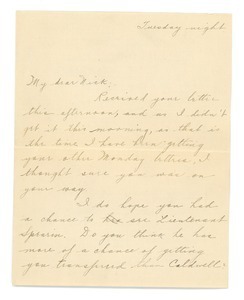 Tuesday night
My dear Dick,
Received your letter
this afternoon, and as I didn't
get it this morning, as that is
the time I have been getting
your other Monday letters, I
thought sure you was on
your way.
I do hope you had
a chance to see Lieutenant
Spearin. Do you think he has
more of a chance of getting
you transferred than Caldwell?